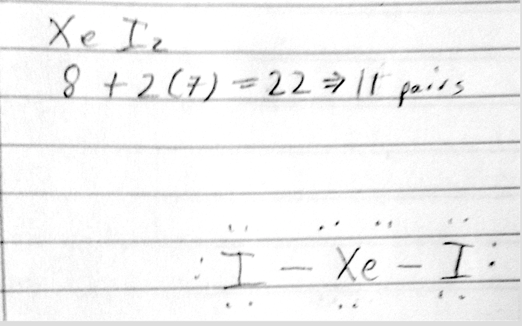 Xe I₂
8 + 2(7) = 22 ⇒ 11 pairs
: I – Xe – I :